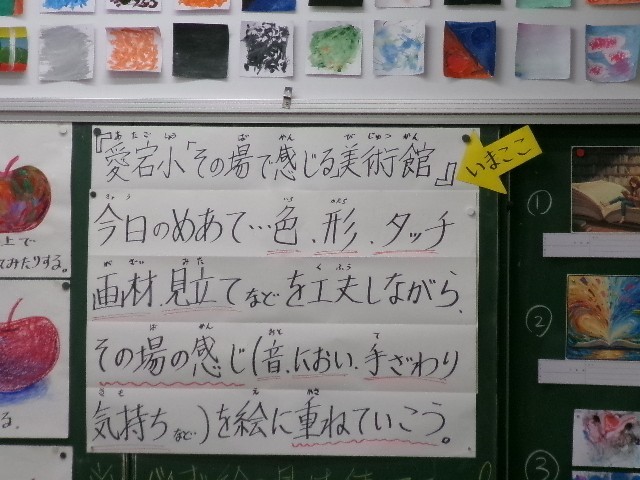 『愛宕小「その場で感じる美術館』
いまここ
今日のめあて…色、形、タッチ
画材、見立てなどを工夫しながら、
その場の感じ(音、におい、手ざわり
気持ちなど)を絵に重ねていこう。
上で
てみたりする。
る。
①
②
③